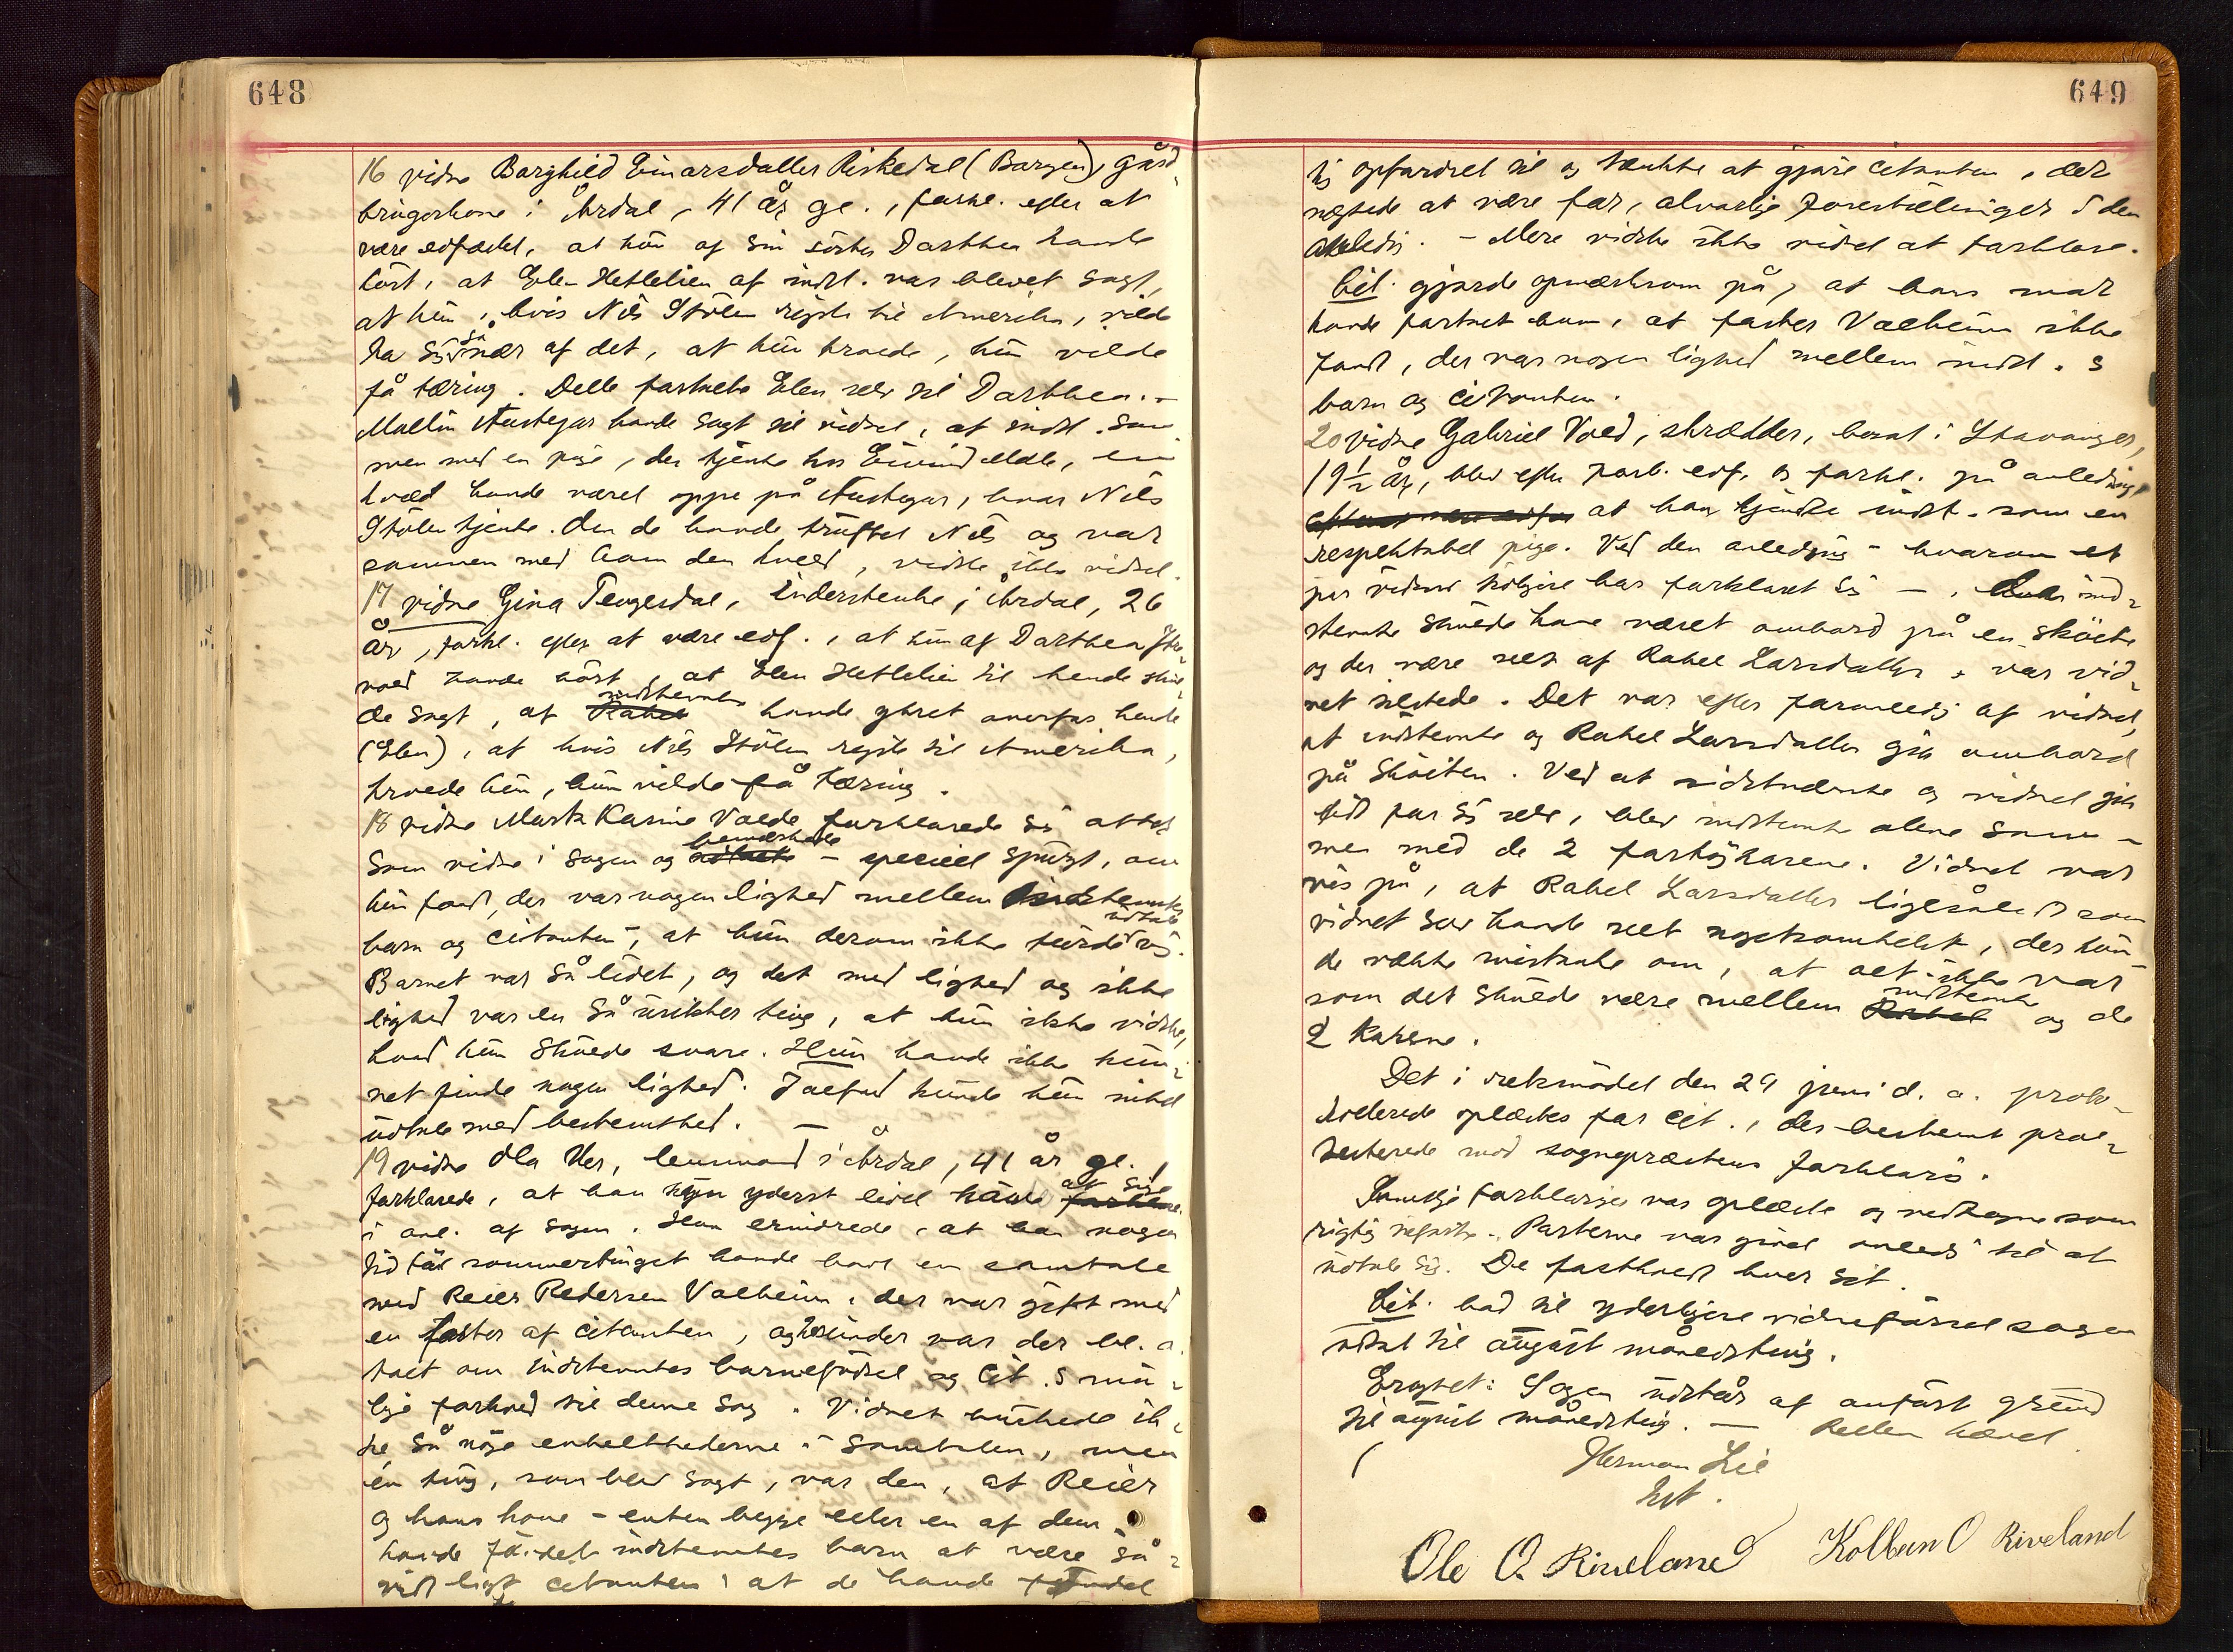 648
16 vidne Borghild Einarsdatter Riskedal (Borgen), gård-
brugerkone i Årdal, 41 år gl., forkl. efter at
være edfæstet, at hun af sin søster Dorthea havde
hørt, at Elen Hetlelien af indst. var blevet sagt,
at hun, hvis Nils Stølen rejste til Amerika, vilde
ta sig så nær af det, at hun troede, hun vilde
få tæring. Dette fortalte Elen selv til Dorthea. –
Mallin Austegar havde sagt til vidnet, at indst. sam-
men med en pige, der tjente hos Eivind Melle, en
kveld havde været oppe på Austegar, hvor Nils
Stølen tjente. Om de havde truffet Nils og var
sammen med ham den kveld, vidste ikke vidnet.
17 vidne Gina Tengesdal, inderstenke i Årdal, 26
år, forkl. efter at være edf., at hun af Dorthea
havde hørt, at Elen Hetlelien til hende skul-
de sagt, at Rahel indstevnte havde ytret overfor hende
(Elen), at hvis Nils Stølen rejste til Amerika,
troede hun, hun vilde få tæring.
18 vidne Marta Karine Voll forklarede sig atter
som vidne i sagen og udtalte bemærkede – speciel spurgt, om
hun fandt, der var nogen lighed mellem indstevntes
barn og citanten –, at hun derom ikke turde udtale sig.
Barnet var så lidet, og det med lighed og ikke
lighed var en så usikker ting, at hun ikke vidste,
hvad hun skulde svare. Hun havde ikke kun-
net finde nogen lighed. Ialfald kunde hun intet
udtale med bestemthed. –
19 vidne Ola Ver, lensmand i Årdal, 41 år gl.,
forklarede, at han kun yderst lidet havde forklare at sige
i anl. af sagen. Han erindrede, at han nogen
tid før sommertinget havde havt en samtale
med Reier Pedersen Valheim, der var gift med
en faster af citanten, og herunder var der bl. a.
talt om indstevntes barnefødsel og Cit.s mu-
lige forhold til denne sag. Vidnet huskede ik-
ke så nøje enkelthederne i samtalen, men
én ting, som blev sagt, var den, at Reier
og hans kone – enten begge eller en af dem –
havde fundet indstevntes barn at være så-
vidt ligt citanten, at de havde fundet
649
sig opfordret til og tænkte at gjøre citanten, der
nægtede at være far, alvorlige forestillinger i den
anledn. – Mere vidste ikke vidnet at forklare.
Cit. gjorde opmærksom på, at hans mor
havde fortalt ham, at faster Valheim ikke
fandt, der var nogen lighed mellem indst.s
barn og citanten.
20 vidne Gabriel Voll, skrædder, bosat i Stavanger,
19½ år, blev efter forb. edf. og forkl. på anledning
at han kjendte indst. som en
respektabel pige. Ved den anledning – hvorom et
par vidner tidligere har forklaret sig –, da ind-
stevnte skulde have været ombord på en skøite
og der være seet af Rahel Larsdatter, var vid-
net tilstede. Det var efter formening af vidnet,
at indstevnte og Rahel Larsdatter gik ombord
på skøiten. Ved at sidstnævnte og vidnet gik
lidt for sig selv, blev indstevnte alene sam-
men med de 2 fartøjkarene. Vidnet var
vis på, at Rahel Larsdatter ligesålidt som
vidnet selv havde seet nogetsomhelst, der kun-
de vække mistanke om, at alt ikke var
som det skulde være mellem Rahel indstevnte og de
2 karene.
Det i retsmødet den 29 juni d. a. proto-
kollerede oplæstes for cit., der bestemt pro-
testerede mod sogneprestens forklaring.
Samtlige forklaringer var oplæste og vedtagne som
rigtig . Parterne var givet anledn. til at
udtale sig. De fastholdt hver sit.
Cit. bad til yderligere vidneførsel sagen
udsat til august månedsting.
Eragtet: Sagen udstår af anført grund
til august månedsting. – Retten hævet.
Herman Lie
Ole O. Riveland Kolbein O Riveland